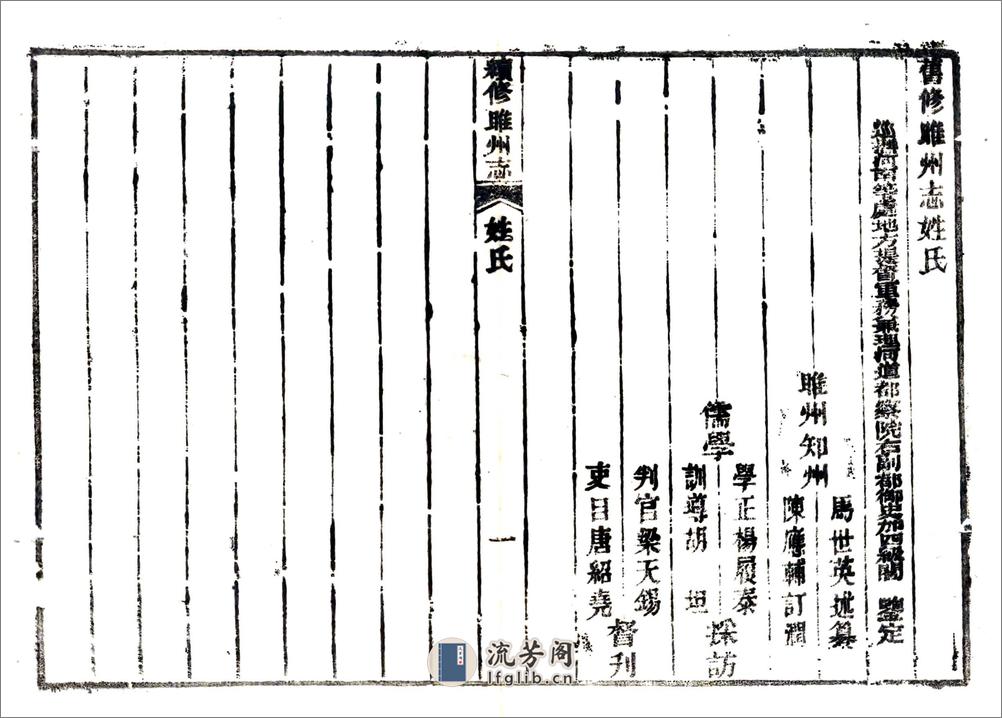 舊修睢州志姓氏
巡撫河南等處地方提督軍務兼理河道都察院右副都御史加四級閻 鑒定
睢州知州
馬世英述纂
陳應輔訂潤
儒學
學正楊履泰
訓導胡 坦
採訪
判官梁天錫
吏目唐紹堯
督刊
續修睢州志
姓氏
一
流芳阁
lfglib.cn